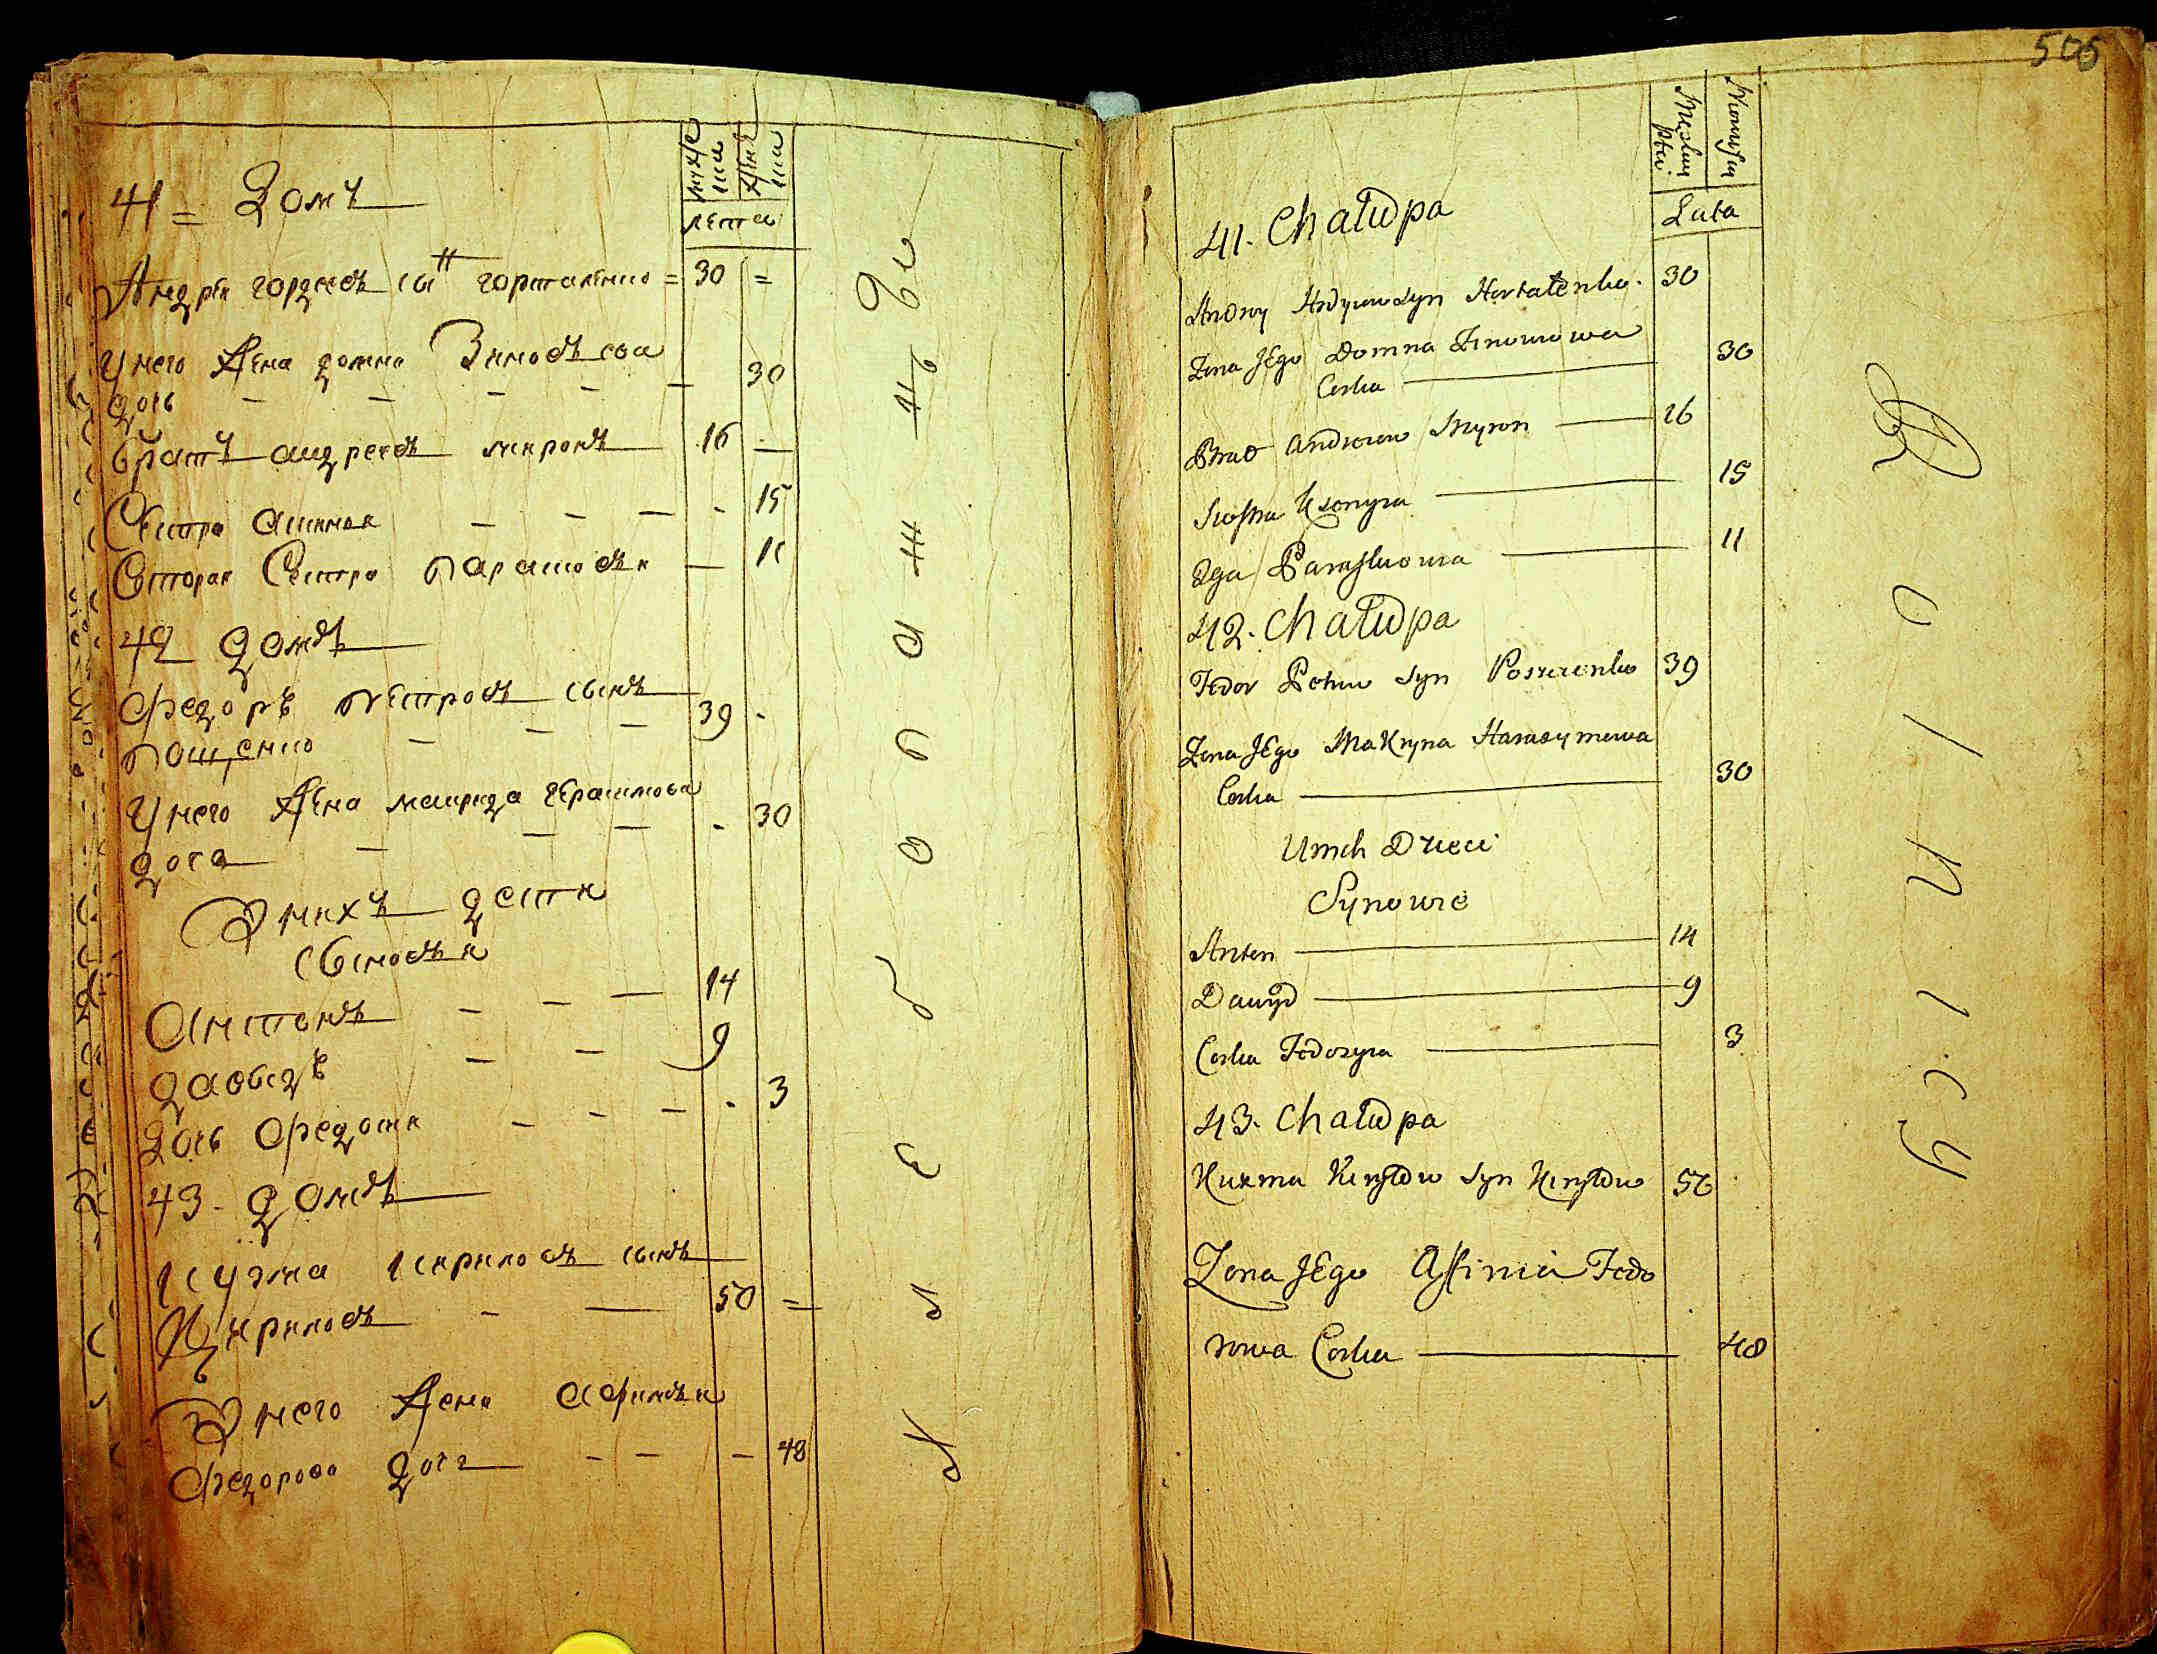 мужеска
женска
лета
41 = Домъ
Андрей гордеевъ сынъ горталенко = 30 =
У него жена домна Зиновѣева
дочь 30
братъ андреевъ миронъ 16
Сестра 15
Вторая Сестра парасковѣя 11
42 домъ
Федоръ петровъ сынъ
пощенко 39
У него жена макрида герасимова
дочь 30
У нихъ дети
сыновѣя
Антонъ 14
давыдъ 9
Дочь Федосия 3
43. домъ
Кузма кириловъ сынъ
Кириловъ 50 =
У него жена афимѣя
Федорова дочь 48
505
Męskiey płci
Niewiescey
Lata
41. Chałupa
Andrey Hordyiow syn Hortałenko. 30
Żona JEgo Domna Zinowiowa
Corka 30
Brat Andreiow Myron 16
Siostra Xsenyia 15
2ga Paraskowia 11
42. Chałupa
Fedor Petrow syn Poszczenko 39
Żona JEgo Makryna Harasymowa
Corka 30
U nich Dzieci
Synowie
Anton 14
Dawyd 9
Corka Fedosyia 3
43. Chałupa
Kuzma Kiryłow syn Kiryłow 50
Żona JEgo Affimia Fedo
rowa Corka 48
Rolnicy